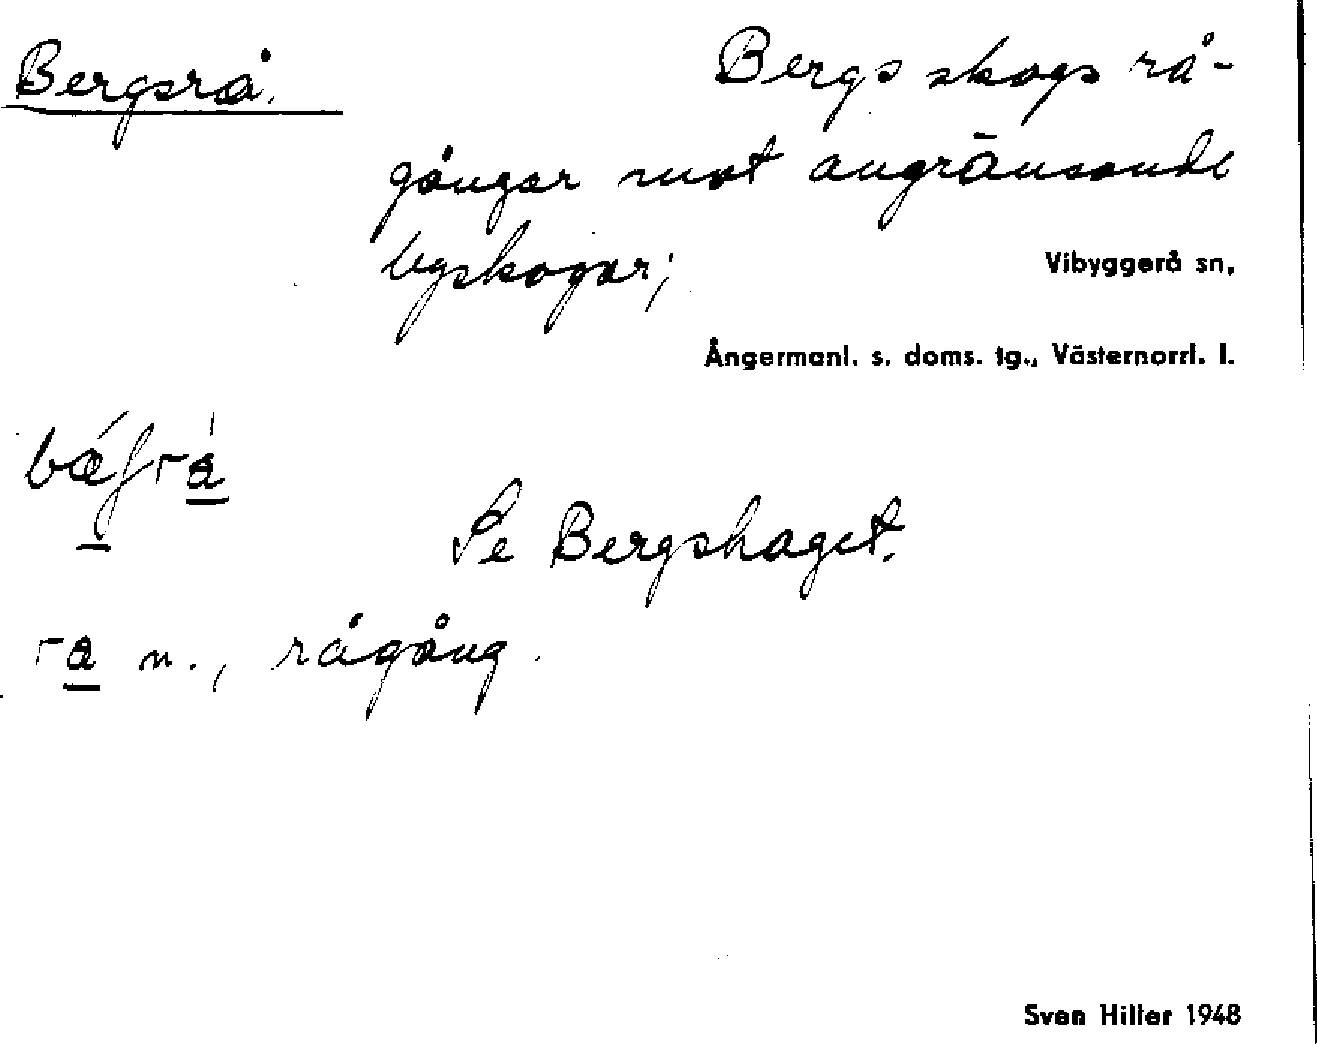 Bergsrå.
Bergs skogs rå-
gångar mot angränsande
byskogar;
Vibyggerå sn,
Ångermanl. s. doms. tg., Västernorrl. l.
Se Bergshaget.
ra̲ n., rågång.
Sven Hiller 1948